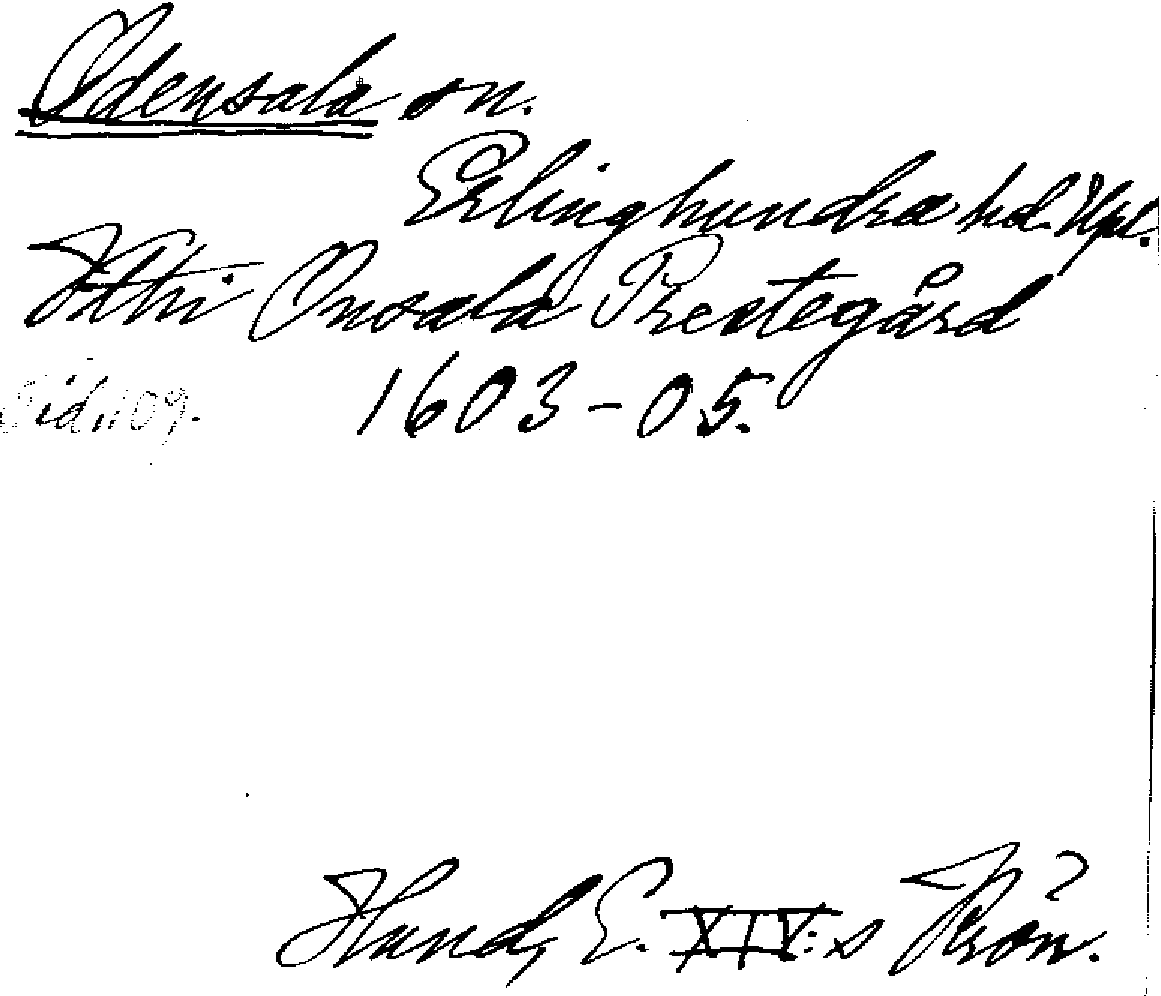 Odensala sn.
Erlinghundra hd. Upl.
Vthi Onsala Prestegård
Sid. 109. 1603-05.
Hund, E. XIV:s Krön.